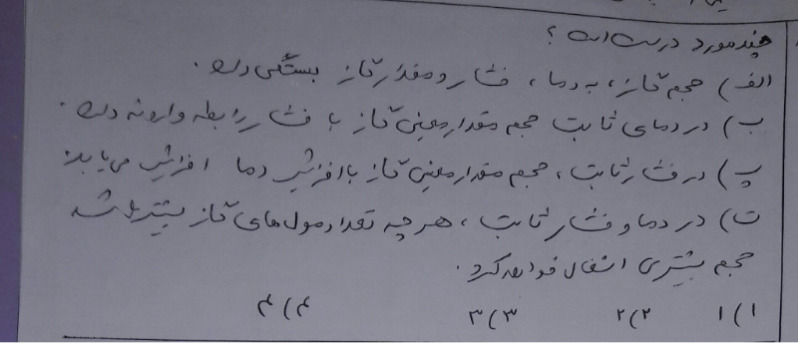 چند مورد درست است؟
الف) حجم گاز، به دما، فشار و مقدار گاز بستگی دارد.
ب) در دمای ثابت حجم مقدار معینی گاز با فشار رابطه وارونه دارد.
پ) در فشار ثابت، حجم مقدار معینی گاز با افزایش دما افزایش می یابد.
ت) در دما و فشار ثابت، هر چه تعداد مول های گاز بیشتر باشد
حجم بیشتری اشغال خواهد کرد.
۱) ۱ ۲) ۲ ۳) ۳ ۴) ۴